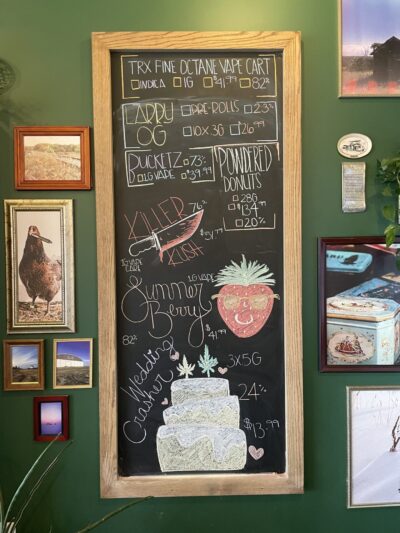 TRX FINE OCTANE VAPE CART
INDICA 1G $41.99 82%
LARRY OG
PRE-ROLLS 23%
10X.3G $26.99
BUCKETZ 73%
1G VAPE $39.99
POWDERED
DONUTS
28G
$134.99
20%
KILLER 76%
KUSH $51.99
1G VAPE
1G VAPE
Summer
Berry $41.99
82%
Wedding
Crasher
3X.5G
24%
$13.99